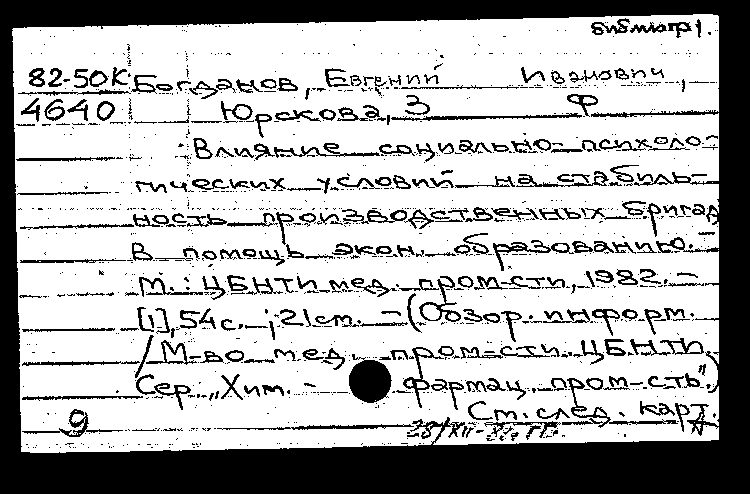 библиогр.
82-50К Богданов, Евгений Иванович,
4640 Юрскова, З Ф
Влияние социально-психоло-
гических условий на стабиль-
ность производственных бригад
В помощь экон. образованию. –
М.: ЦБНТИ мед. пром-сти, 1982. –
[1], 54 с. ; 21 см. – (Обзор. информ.
/ М-во мед. пром-сти. ЦБНТИ,
Сер. „Хим. – фармац. пром-сть".)
См. след. карт.
9